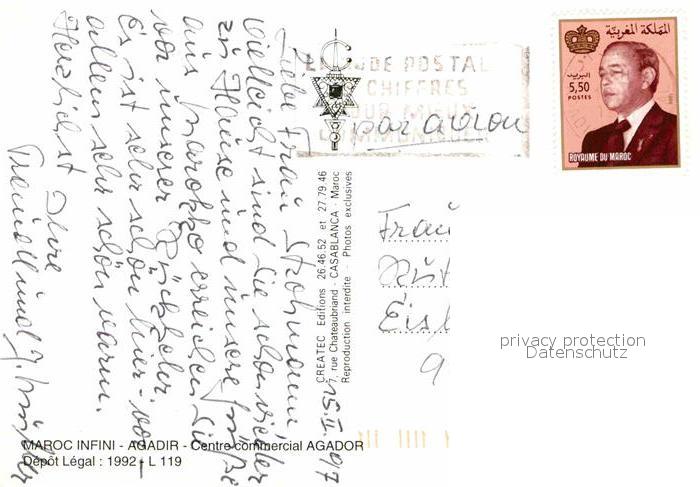 Liebe Frau Strohmaier 15.II.97
Vielleicht sind Sie schon wieder
zu Hause und unsere Grüße
aus Marokko erreichen Sie
vor unserer Rückkehr.
Es ist sehr schön hier – vor
allem sehr schön warm.
Herzlichst Ihre
CODE POSTAL
CHIFFRES
POUR MIEUX
COMMUNIQUER
par avion
المملكة المغربية
البريد
5,50
POSTES
ROYAUME DU MAROC
CREATEC Editions 26.46.52 et 27.79.46
7, rue Chateaubriand - CASABLANCA - Maroc
Reproduction interdite Photos exclusives
Frau
Eis
9
privacy protection
Datenschutz
MAROC INFINI - AGADIR - Centre commercial AGADOR
Dépôt Légal : 1992 - L 119